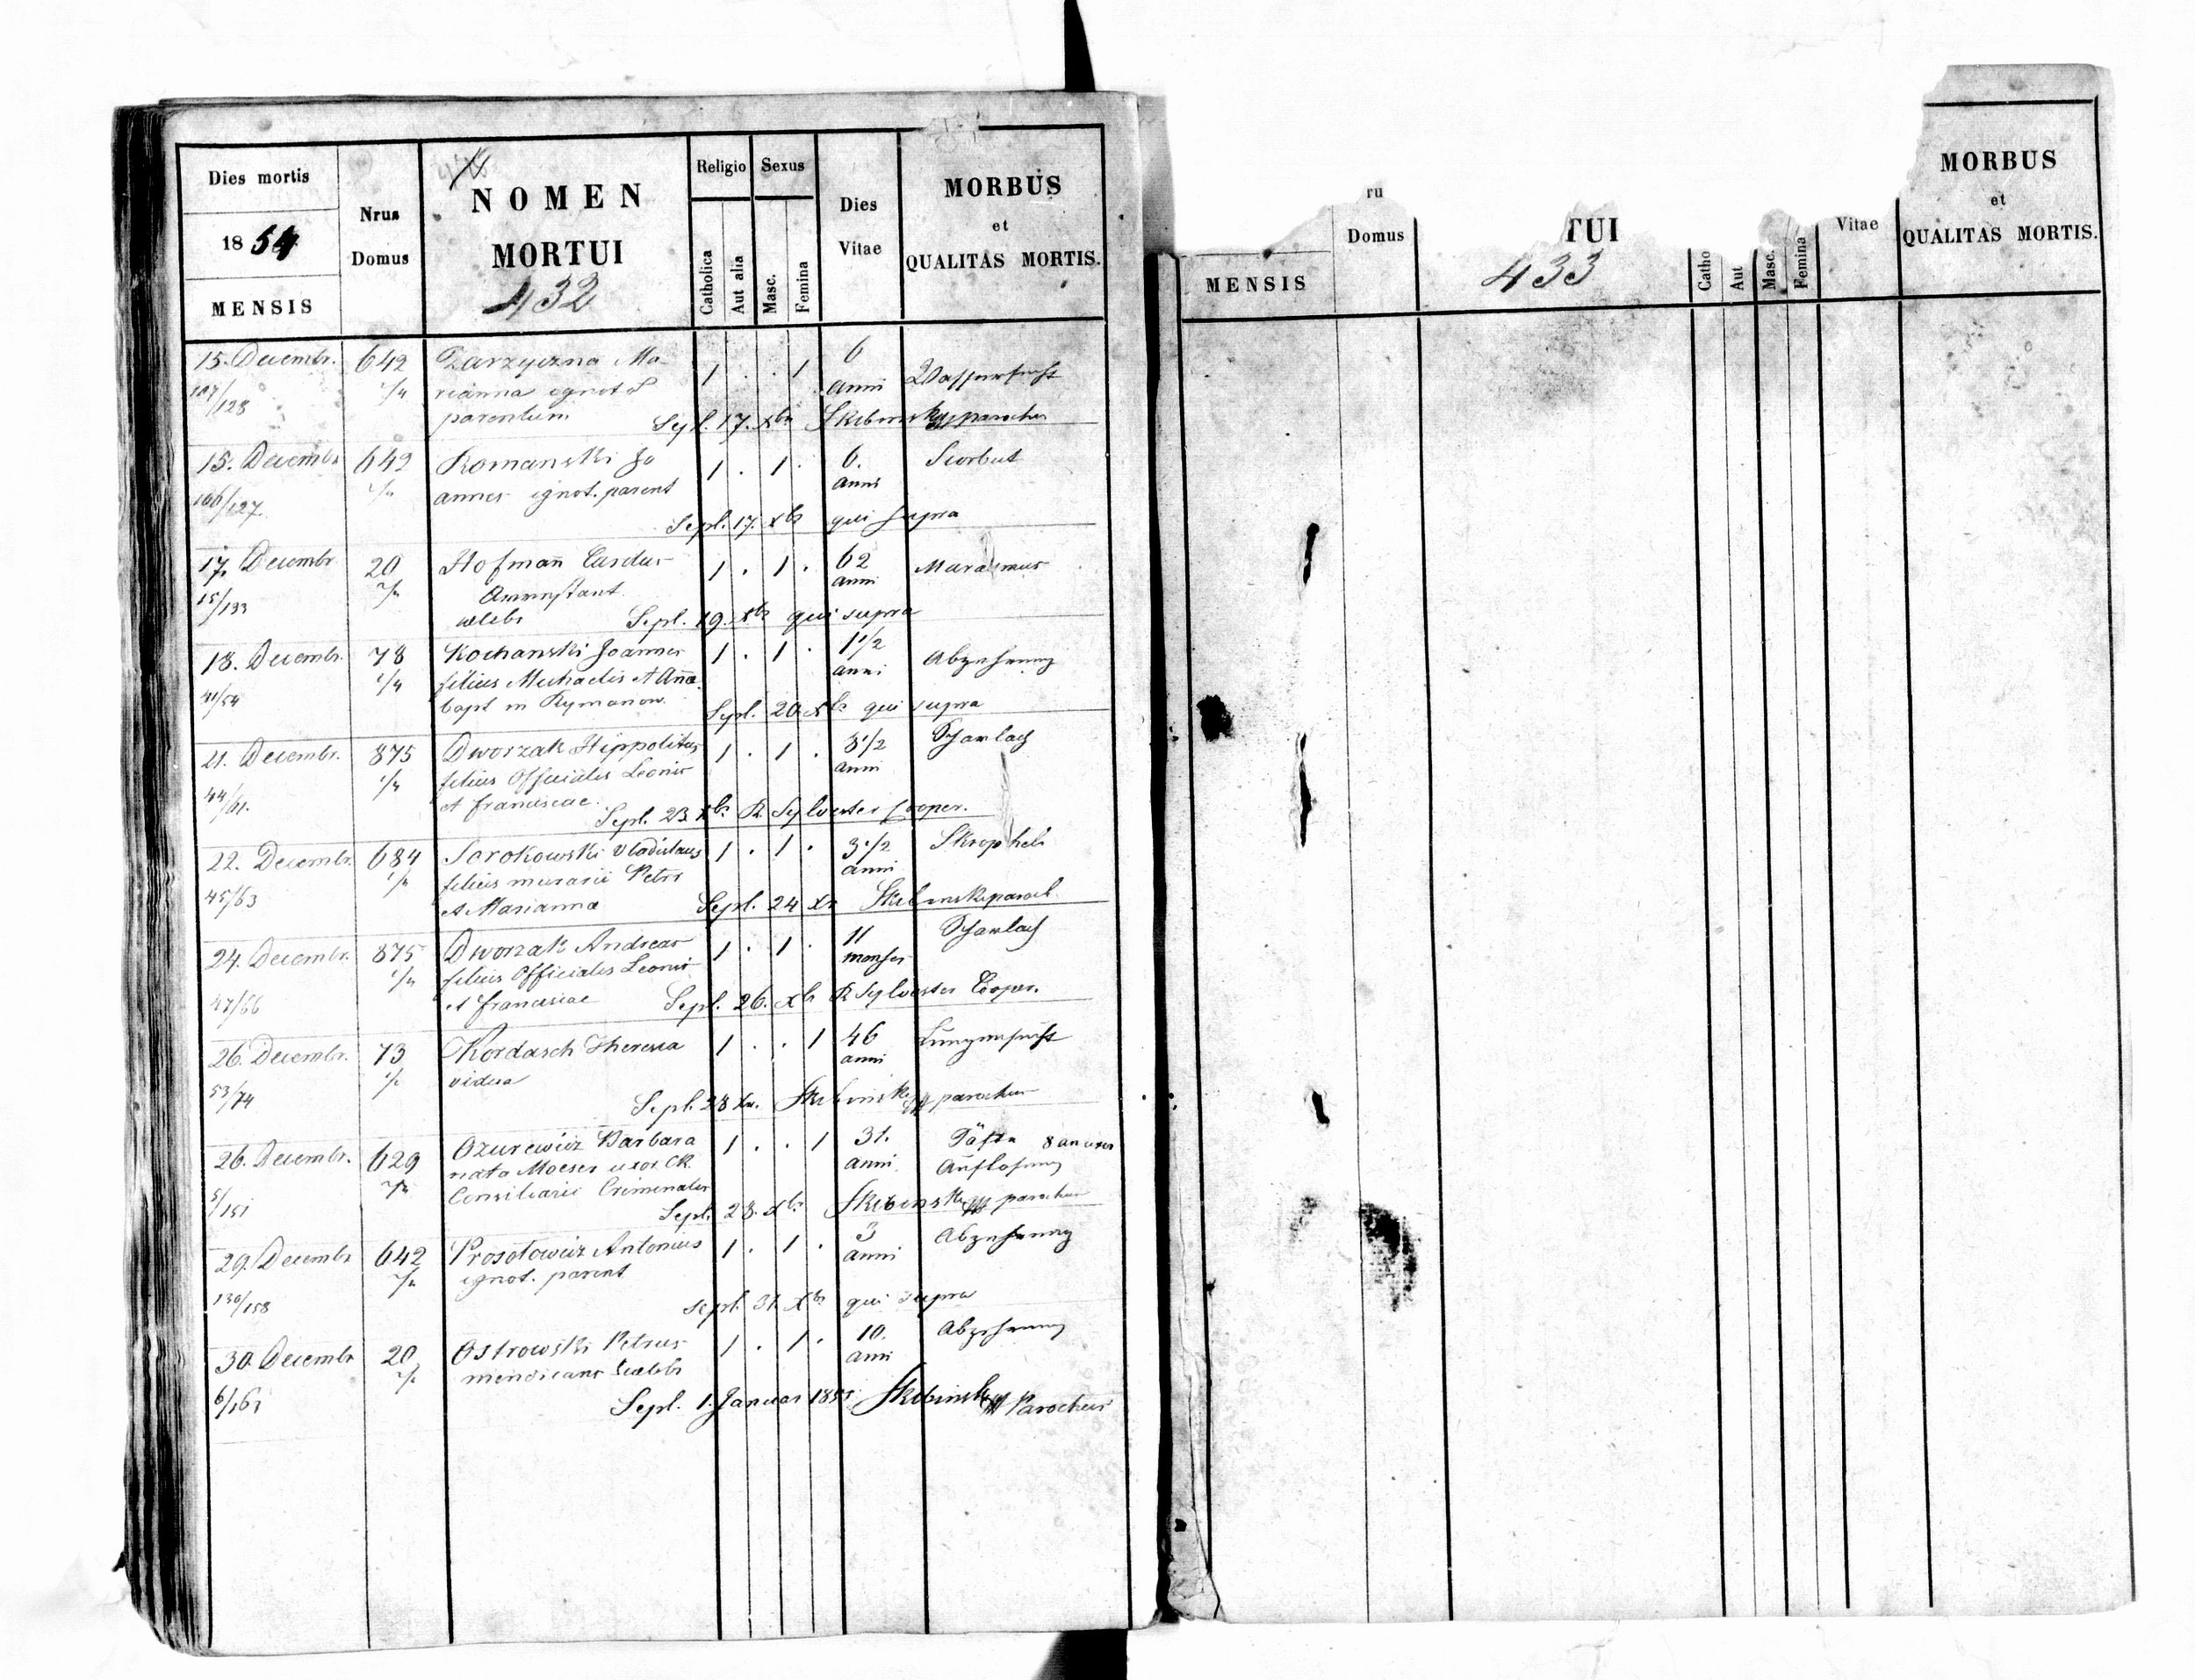 Dies mortis
18 54
MENSIS
Nrus
Domus
NOMEN
MORTUI
432
Religio
Catholica
Aut alia
Sexus
Masc.
Femina
Dies
Vitae
MORBUS
et
QUALITAS MORTIS.
15. Decembr. 642 Zarzyczna Ma- 1 . . 1 6
107/128 rianna ignot. anni Wassersucht
parentum Sepl. 17. Xbr Skibinski parochus
15. Decembr 642 Romanski Jo 1 . 1 . 6. Scorbut
106/127. annes ignot. parent anni
Sepl. 17. Xbr qui supra
17. Decembr 20 Hofmañ 1 . 1 . 62 Marasmus
15/133 anni
celebs Sepl. 19. Xbr qui supra
18. Decembr. 78 Kochanski Joannes 1 . 1 . 1 1/2 Abzehrung
41/54 filius Michaelis et Anñae anni
bapt in Rymanow. Sepl. 20. Xbr qui supra
21. Decembr. 875 Dworzak Hippolitus 1 . 1 . 3 1/2 Scharlach
44/61. filius Officialis Leonis anni
et Franciscae. Sepl. 23. Xbr R Sylvester Cooper.
22. Decembr. 684 Sorokowski Vladislaus 1 . 1 . 3 1/2 Skropheln
45/63 filius murarii Petri anni
et Marianna Sepl. 24 Xr Skibinski paroch.
24. Decembr. 875 Dworzak Andreas 1 . 1 . 11 Scharlach
47/66 filius Officialis Leonis menses
et Franciscae Sepl. 26. Xbr R Sylvester Cooper.
26. Decembr. 73 Kordasch Theresia 1 . . 1 46 Lungensucht
53/74 vidua anni
Sepl. 28 Xbr. Skibinski parochus
26. Decembr. 629 Ozurewicz Barbara 1 . . 1 31.
5/151 nata Moeser uxor CR anni Auflösung
Consiliarii Criminalis
Sepl. 28. Xbr. Skibinski parochus
29. Decembr 642 Prosotowicz Antonius 1 . 1 . 3 Abzehrung
130/158 ignot. parent anni
sepl. 31. Xbr qui supra
30. Decembr 20 Ostrowski Petrus 1 . 1 . 10. Abzehrung
mendicans celebs anni
Sepl. 1. Januar 1855. Skibinski Parochus
MENSIS
ru
Domus
TUI
433
Catho
Aut
Masc.
Femina
Vitae
MORBUS
et
QUALITAS MORTIS.